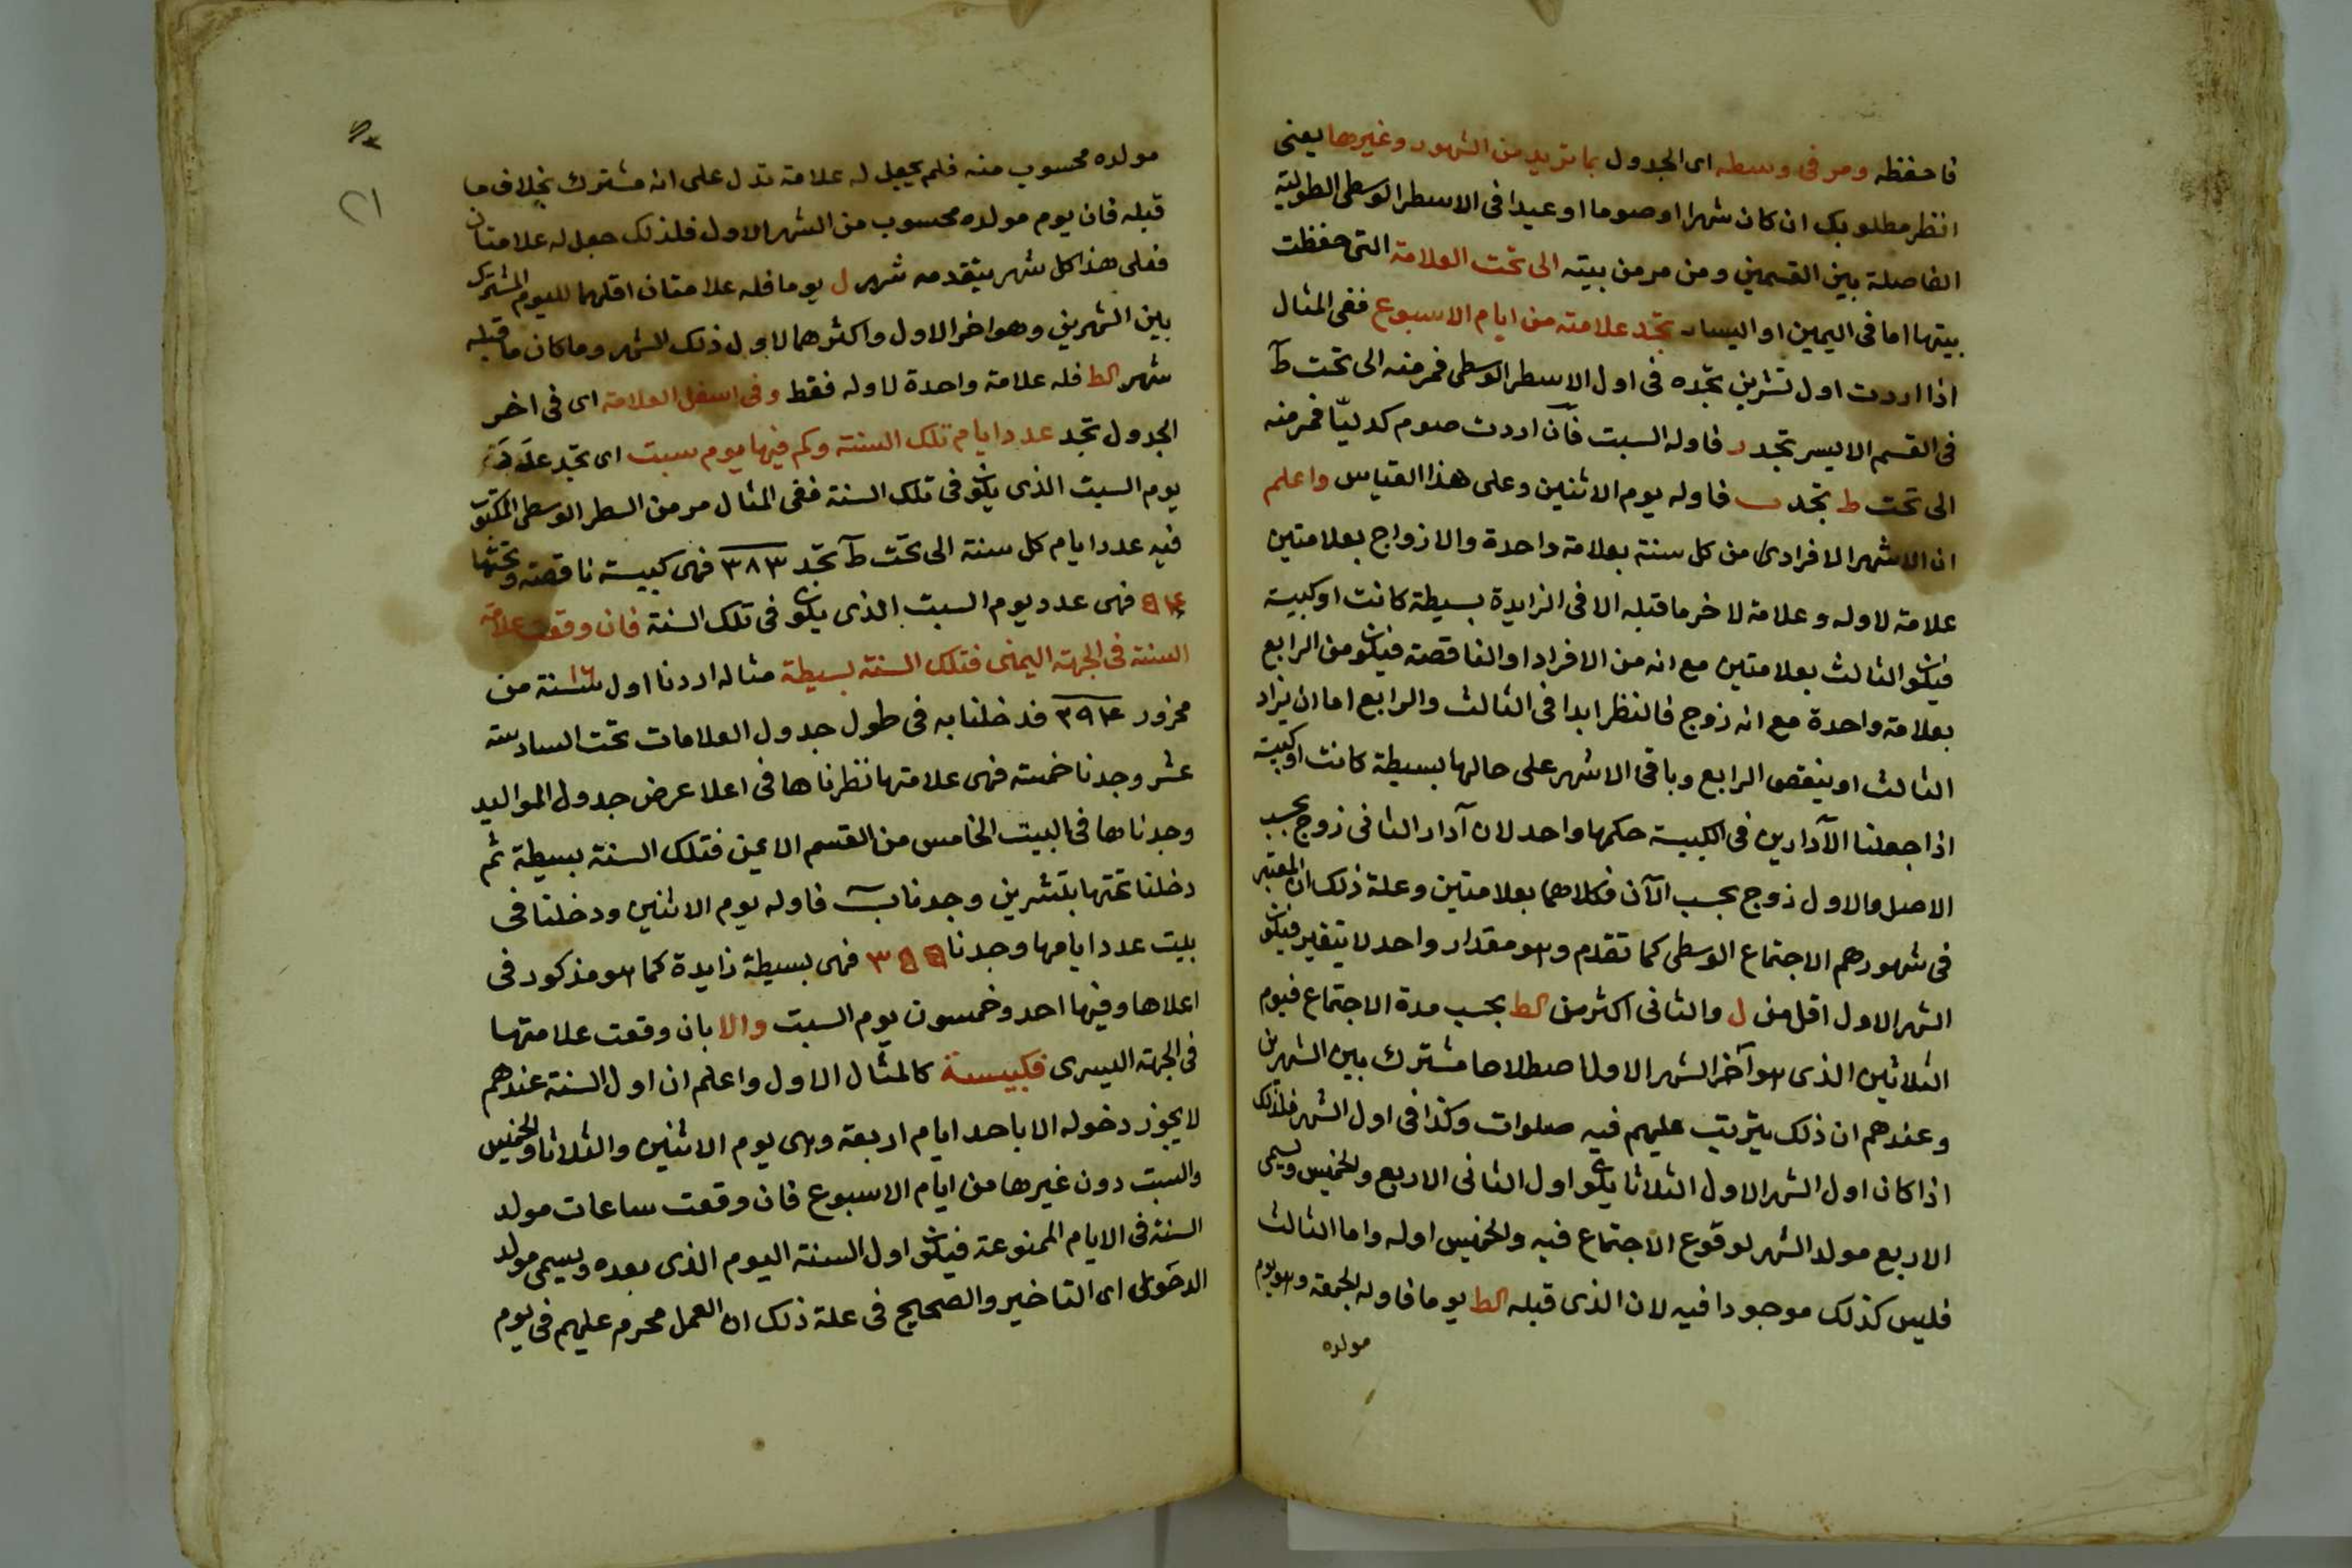 فاحفظه ومر فى وسطه اى الجدول بما تريد من الشهور وغيرها يعنى
انظر مطلوبك ان كان شهرا او صوما او عيدا فى الاسطر الوسطى الطولية
الفاصلة بين القسمين ومن مر من بيته الى تحت العلامة التى حفظت
بيتها اما فى اليمين او اليسار تجد علامته من ايام الاسبوع ففى المثال
اذا اردت اول تشرين تجده فى اول الاسطر الوسطى فمر منه الى تحت ط
فى القسم الايسر تجد ز فاوله السبت فان اردت صوم كدليا فمر منه
الى تحت ط تجد ب فاوله يوم الاثنين وعلى هذا القياس واعلم
ان الاشهر الافرادى من كل سنة بعلامة واحدة والازواج بعلامتين
علامة لاوله وعلامة لاخر ما قبله الا فى الزايدة بسيطة كانت او كبيسة
فيكون الثالث بعلامتين مع انه من الافراد او الناقصة فيكون الرابع
بعلامة واحدة مع انه زوج فالنظر ابدا فى الثالث والرابع اما ان يزاد
الثالث او ينقص الرابع وباقى الاشهر على حالها بسيطة كانت او كبيسة
اذا جعلنا الآدارين فى الكبيسة حكمها واحد لان آدار الثانى زوج بحسب
الاصل والاول زوج بحسب الآن فكلاهما بعلامتين وعلة ذلك ان المعتبر
فى شهورهم الاجتماع الوسطى كما تقدم وهو مقدار واحد لا يتغير فيكون
الشهر الاول اقل من ل والثانى اكثر من كط بحسب مدة الاجتماع فيوم
الثلاثين الذى هو آخر الشهر الاول اصطلاحا مشترك بين الشهرين
وعندهم ان ذلك يترتب عليهم فيه صلوات وكذا فى اول الشهر فلذلك
اذا كان اول الشهر الاول الثلاثا يكون اول الثانى الاربع والخميس ويسمى
الاربع مولد الشهر لوقوع الاجتماع فيه والخميس اوله واما الثالث
فليس كذلك موجودا فيه لان الذى قبله كط يوما فاوله الجمعة وهو يوم
مولده
٢١
مولده محسوب منه فلم يجعل له علامة تدل على انه مشترك بخلاف ما
قبله فان يوم مولده محسوب من الشهر الاول فلذلك جعل له علامتان
فعلى هذا كل شهر يتقدمه شهر ل يوما فله علامتان اقلهما لليوم المشترك
بين الشهرين وهو اخر الاول واكثرهما لاول ذلك الشهر وما كان ما قبله
شهر كط فله علامة واحدة لاوله فقط وفى اسفل العلامة اى فى اخر
الجدول تجد عدد ايام تلك السنة وكم فيها يوم سبت اى تجد
يوم السبت الذى يكون فى تلك السنة ففى المثال مر من السطر الوسطى المكتوب
فيه عدد ايام كل سنة الى تحت ط تجد ٣٨٣ فهى كبيسة ناقصة وتحتها
فهى عدد يوم السبت الذى يكون فى تلك السنة فان وقعت علامة
السنة فى الجهة اليمنى فتلك السنة بسيطة مثاله اردنا اول سنة ١٦ من
محزور ٣٩٤ فدخلنا به فى طول جدول العلامات تحت السادسة
عشر وجدنا خمسة فهى علامتها نظرناها فى اعلا عرض جدول المواليد
وجدناها فى البيت الخامس من القسم الايمن فتلك السنة بسيطة ثم
دخلنا تحتها بتشرين وجدنا ب فاوله يوم الاثنين ودخلنا فى
بيت عدد ايامها وجدنا ٣٥٥ فهى بسيطة زايدة كما هو مذكور فى
اعلاها وفيها احد وخمسون يوم السبت والا بان وقعت علامتها
فى الجهة اليسرى فكبيسة كالمثال الاول واعلم ان اول السنة عندهم
لا يجوز دخوله الا باحد ايام اربعة وهى يوم الاثنين والثلاثا والخميس
والسبت دون غيرها من ايام الاسبوع فان وقعت ساعات مولد
السنة فى الايام الممنوعة فيكون اول السنة اليوم الذى بعده ويسمى مولد
الدحوى اى التاخير والصحيح فى علة ذلك ان العمل محرم عليهم فى يوم